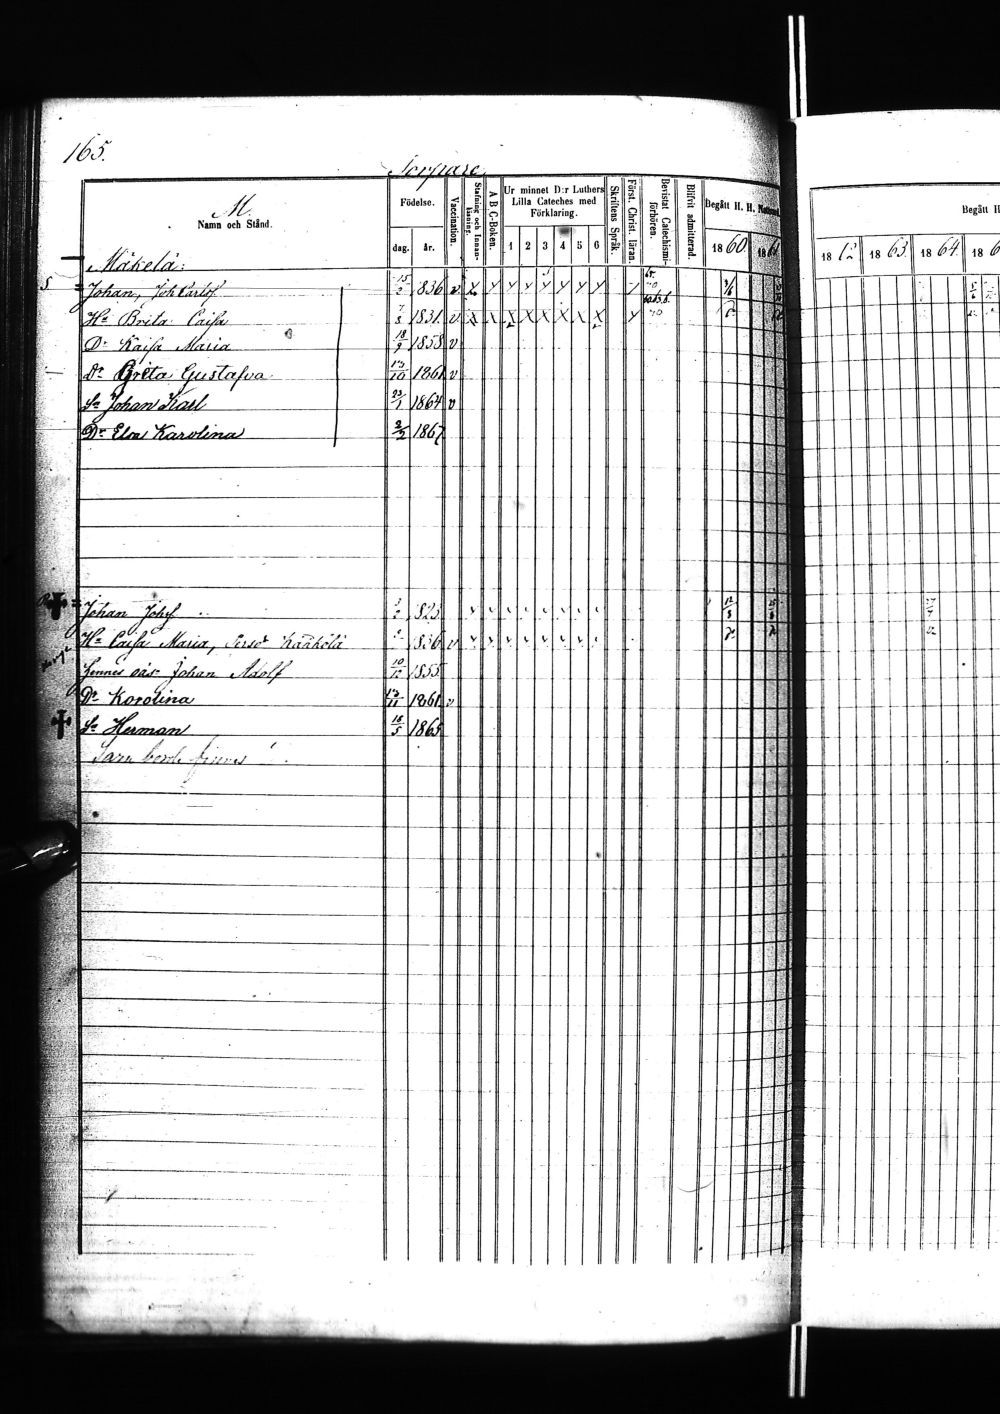 165.
Torpare
M.
Namn och Stånd.
Födelse.
dag. år.
Vaccination.
Stafning och Innanläsning.
A B C-Boken.
Ur minnet D:r Luthers Lilla Cateches med Förklaring.
1 2 3 4 5 6
Skriftens Språk.
Först. Christ. läran.
Bevistat Catechismiförhören.
Blifvit admitterad.
Begått H. H. Nattvard
1860 1861
Begått H
1862 1863. 1864. 186
Mäkelä:
5 Johan, Joh Carlsf 15/2 1836 v
Hu Brita Caisa 7/8 1831. v
Dr Kaisa Maria 18/9 1858 v
Dr Greta Gustafva 13/10 1861 v
Sn Johan Karl 23/1 1864 v
Dr Eva Karolina 2/2 1867
Johan Johsf 1823.
Hu Caisa Maria, Persdr Kääkelä 1836 v
hennes oäs: Johan Adolf 10/12 1855.
Dr Korolina 13/11 1861 v
Sn Herman 18/5 1865